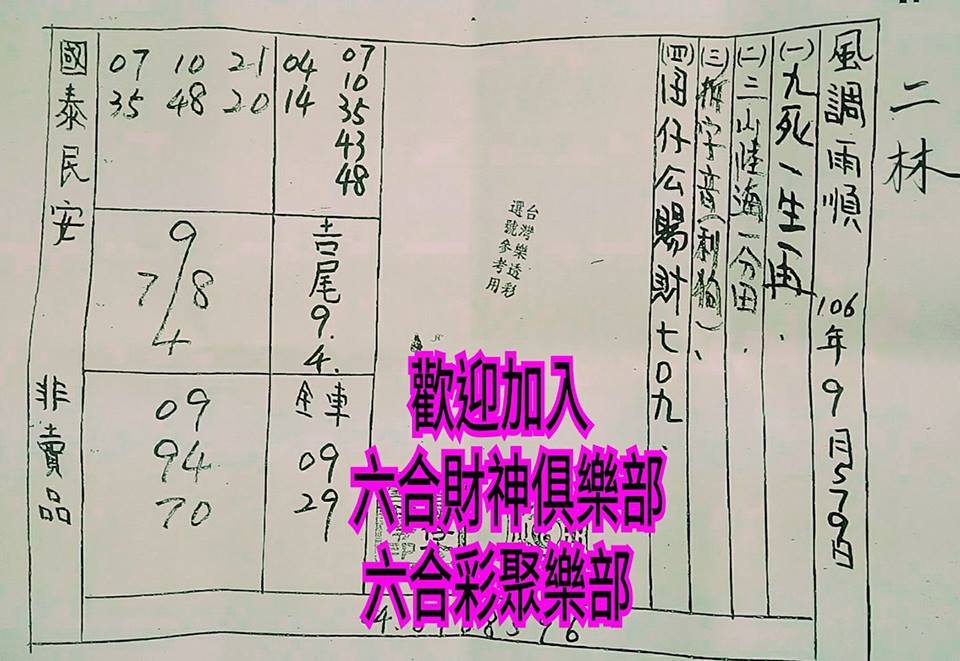 二林
風調雨順 106年9月579日
(一)九死一生再、
(二)三山陸海一分田、
(三)拆字音(劇胸)、
(四)囝仔公賜財七0九、
台灣樂透彩
選號參考用
07
10
35
43
48
04
14
07 10 21
35 48 20
吉尾9.4.
9
7/8
4
金車
09
29
09
94
70
國泰民安 非賣品
歡迎加入
六合財神俱樂部
六合彩聚樂部